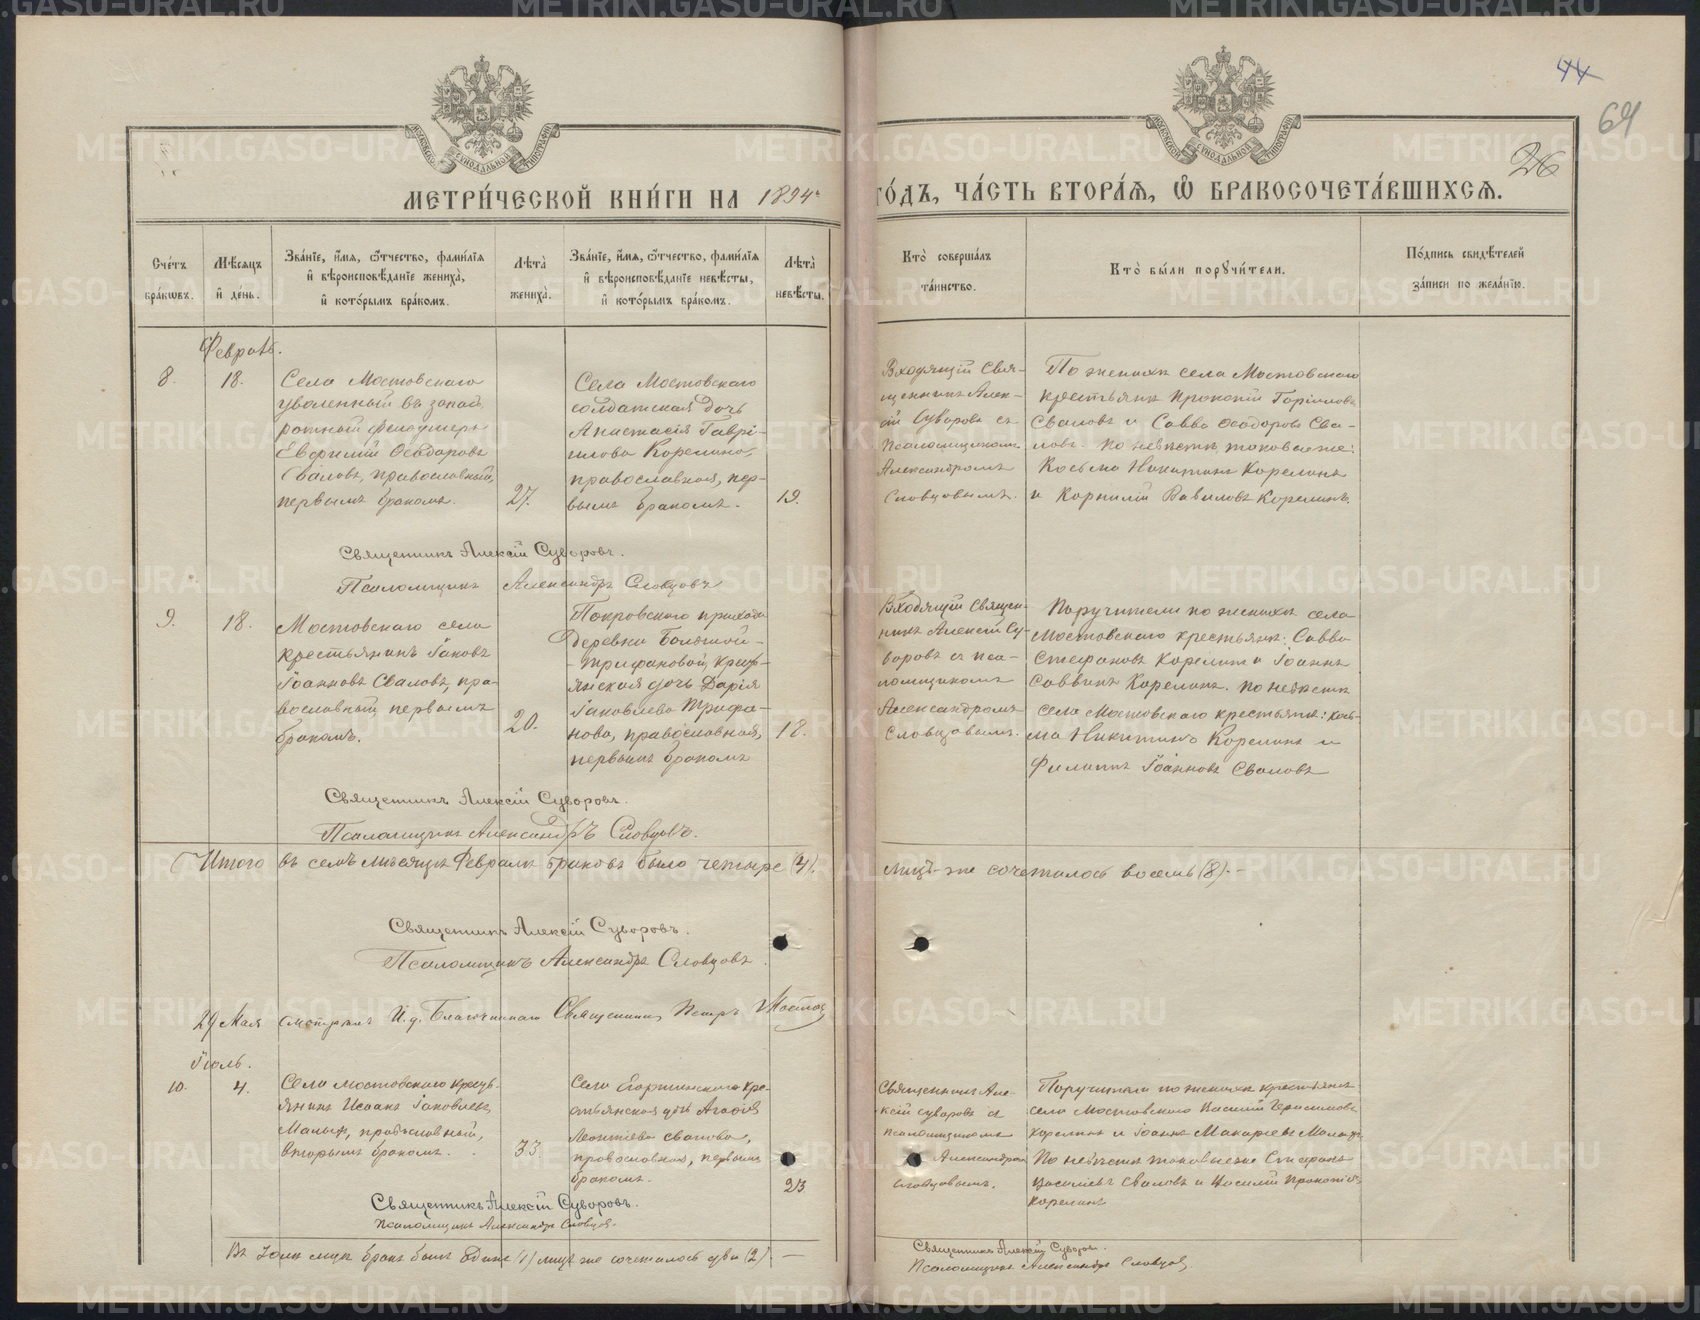 44
64
26
МОСКОВСКОЙ СѴНОДАЛЬНОЙ ТИПОГРАФІИ
МОСКОВСКОЙ СѴНОДАЛЬНОЙ ТИПОГРАФІИ
МЕТРИ́ЧЕСКОЙ КНИ́ГИ НА 1894 го́дъ, ЧА́СТЬ ВТОРА́Я, Ѽ БРАКОСОЧЕТА́ВШИХСЯ.
Сче́тъ бра́кѡвъ.
Мѣ́сяцъ и҆ де́нь.
Зва́нїе, и҆́мя, ѻ҆́тчество, фами́лїя и҆ вѣроисповѣ́данїе жениха̀, и҆ кото́рымъ бра́комъ.
Лѣ́та̀ жениха̀.
Зва́нїе, и҆́мя, ѻ҆́тчество, фами́лїя и҆ вѣроисповѣ́данїе невѣ́сты, и҆ кото́рымъ бра́комъ.
Лѣ́та̀ невѣ́сты.
Кто̀ соверша́лъ та́инство.
Кто̀ бы́ли порꙋчи́тели.
По́дпись свидѣ́телей за́писи по жела́нїю.
Февраль.
8.
18.
Села Мостовскаго
уволенный въ запасъ
ротный фельдшеръ
Евфимій Ѳеодоровъ
Сваловъ, православный,
первымъ бракомъ.
27.
Села Мостовскаго
солдатская дочь
Анастасія Гаврі-
илова Корелина,
православная, пер-
вымъ бракомъ.
19.
Входящій Свя-
щенникъ Алек-
сій Суворовъ съ
Псаломщикомъ
Александромъ
Словцовымъ.
По женихѣ села Мостовскаго
крестьяне Прокопій
Сваловъ и Савва Ѳеодоровъ Сва-
ловъ. По невѣстѣ таковые же:
Косьма Никитинъ Корелинъ
и Корнилій Вавиловъ Корелинъ.
Священникъ Алексій Суворовъ.
Псаломщикъ Александръ Словцовъ
9.
18.
Мостовскаго села
крестьянинъ Іаковъ
Іоанновъ Сваловъ, пра-
вославный, первымъ
бракомъ.
20.
Покровскаго прихода
деревни Большой-
-Трифановой, кресть-
янская дочь Дарія
Іаковлева Трифа-
нова, православная,
первымъ бракомъ
18.
Входящій Священ-
никъ Алексій Су-
воровъ съ пса-
ломщикомъ
Александромъ
Словцовымъ.
Поручители по женихѣ села
Мостовскаго крестьяне: Савва
Стефановъ Корелинъ и Іоаннъ
Саввинъ Корелинъ. По невѣстѣ
села Мостовскаго крестьяне: Кось-
ма Никитинъ Корелинъ и
Филиппъ Іоанновъ Сваловъ
Священникъ Алексій Суворовъ.
Псаломщикъ Александръ Словцовъ.
Итого въ семъ мѣсяцѣ Февралѣ браковъ было четыре (4). Лицъ-же сочеталось восемь (8).-
Священникъ Алексій Суворовъ.
Псаломщикъ Александръ Словцовъ.
29 Мая смотрѣлъ И. д. Благочиннаго Священникъ Петръ
Іюль.
10.
4.
Села Мостовскаго кресть-
янинъ Исаакъ Іаковлевъ
Малыхъ, православный,
вторымъ бракомъ.
33.
Села Егоршинскаго кре-
стьянская дочь Агафія
Леонтіева Свалова,
православная, первымъ
бракомъ.
23
Священникъ Але-
ксій Суворовъ съ
псаломщикомъ
Александромъ
Словцовымъ.
Поручители по женихѣ крестьяне
села Мостовскаго Василій Герасимовъ
Корелинъ и Іоаннъ Макаріевъ Малыхъ.
По невѣстѣ таковые же Стефанъ
Васильевъ Сваловъ и Василій Прокопіевъ
Корелинъ
Священникъ Алексій Суворовъ.
Псаломщикъ Александръ Словцовъ.
Въ Іюлѣ мѣсяцѣ бракъ былъ одинъ (1) лицъ же сочеталось два (2). -
Священникъ Алексій Суворовъ.
Псаломщикъ Александръ Словцовъ
METRIKI.GASO-URAL.RU